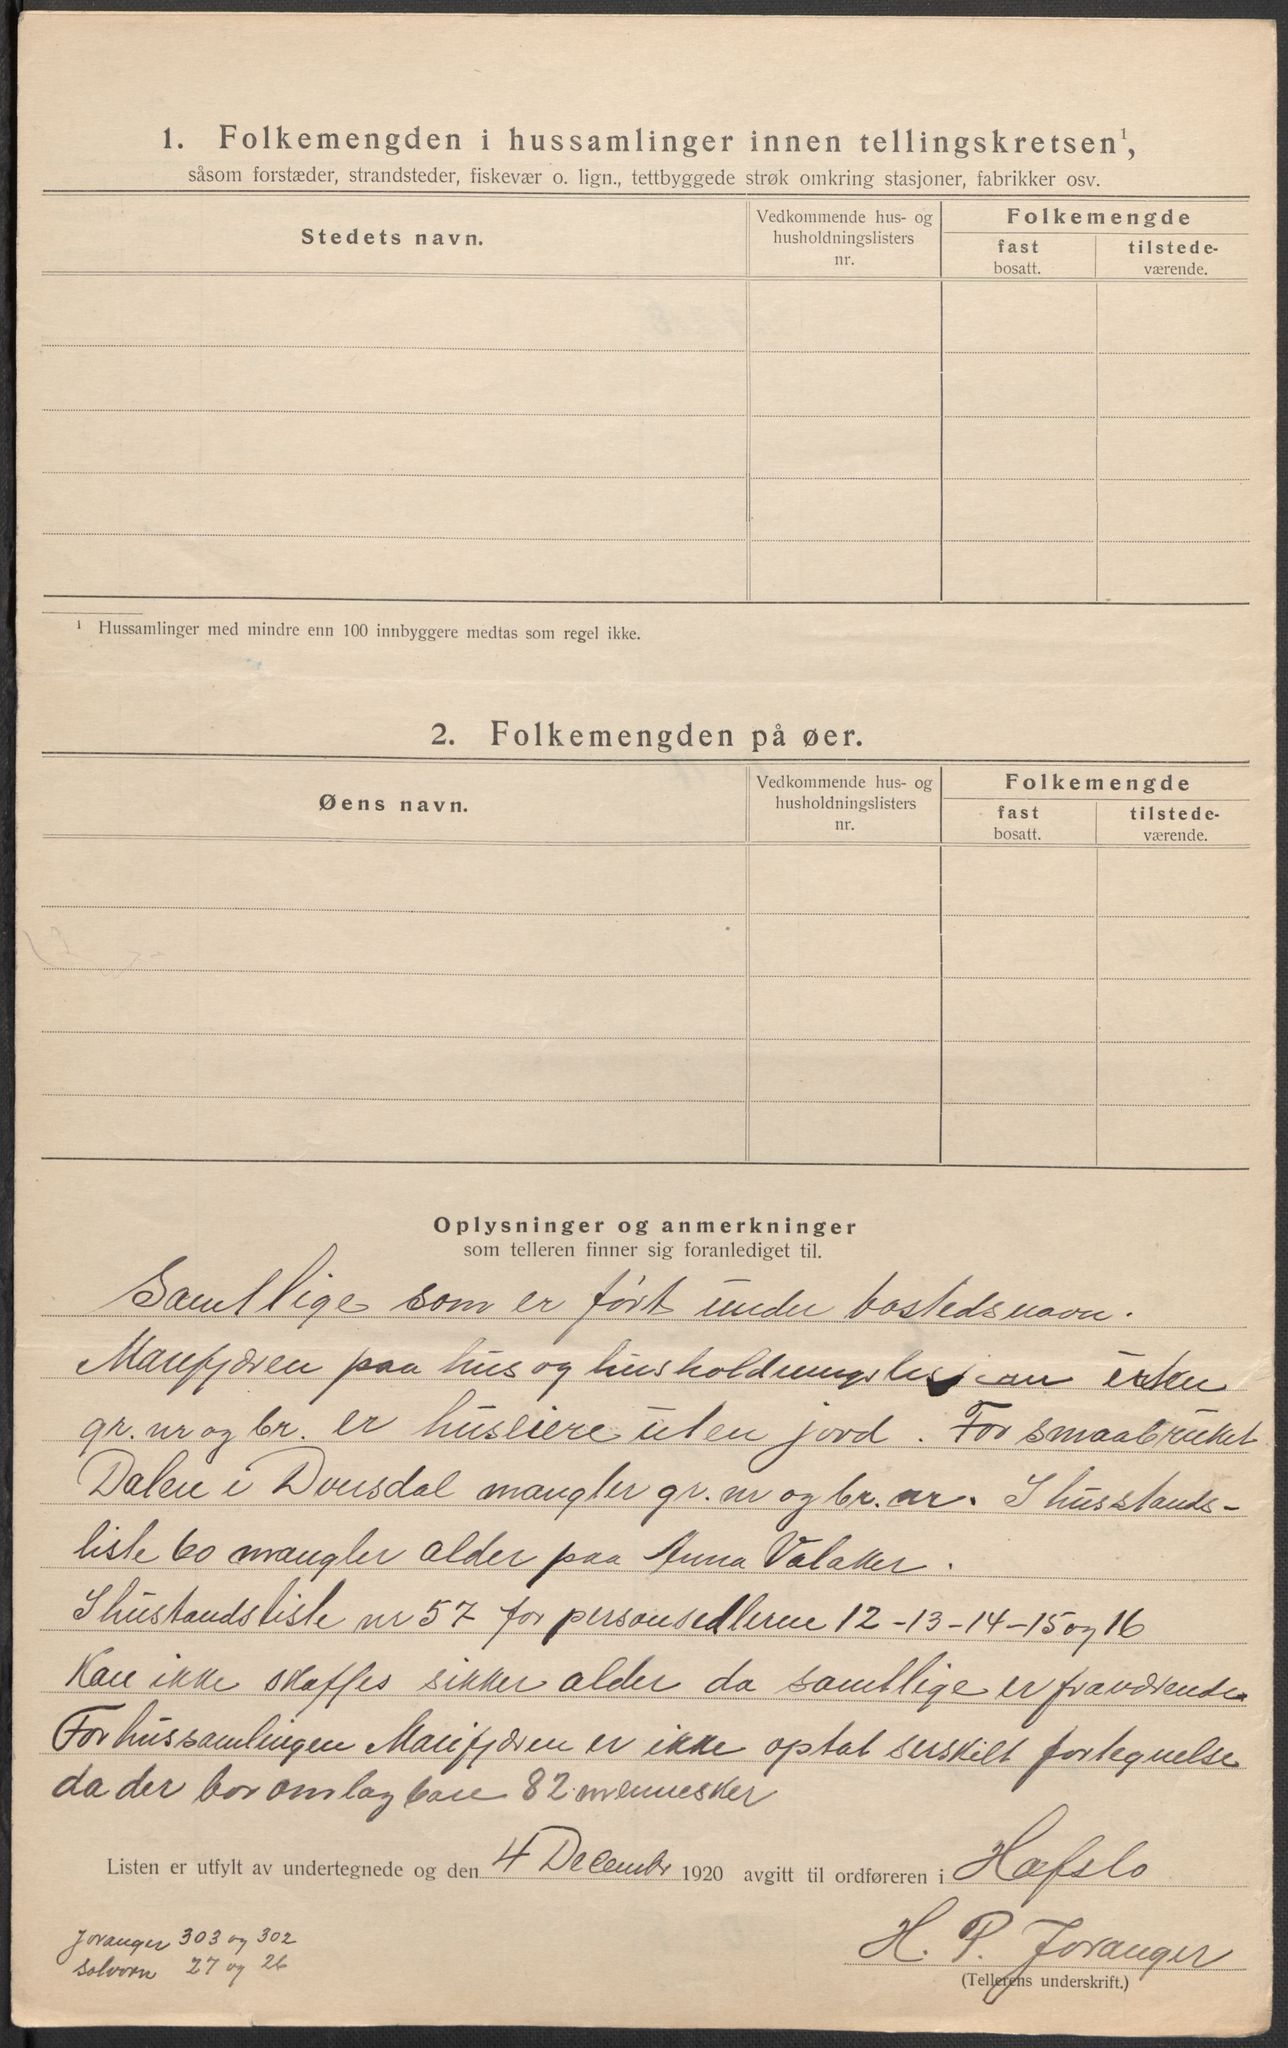 1. Folkemengden i hussamlinger innen tellingskretsen¹,
såsom forstæder, strandsteder, fiskevær o. lign., tettbyggede strøk omkring stasjoner, fabrikker osv.
Stedets navn.
Vedkommende hus- og
husholdningslisters
nr.
Folkemengde
fast
bosatt.
tilstede-
værende.
¹ Hussamlinger med mindre enn 100 innbyggere medtas som regel ikke.
2. Folkemengden på øer.
Øens navn.
Vedkommende hus- og
husholdningslisters
nr.
Folkemengde
fast
bosatt.
tilstede-
værende.
Oplysninger og anmerkninger
som telleren finner sig foranlediget til.
Samtlige som er ført under bostedsnavn.
Marifjæren paa hus og husholdningslistan uten
gr. nr og br. er huseiere uten jord. For smaabruket
Dalen i Dousdal mangler gr. nr og br. nr. I husstands-
liste 60 mangler alder paa Anna Valaker.
I hustandsliste nr 57 for personsedlerne 12-13-14-15 og 16
Kan ikke skaffes sikker alder da samtlige er fraværende
For hussamlingen Marifjæren er ikke optat serskilt fortegnelse
da der bor omlag bare 82 mennesker
Listen er utfylt av undertegnede og den 4 Decembr 1920 avgitt til ordføreren i Hafslo
Joranger 303 og 302
Solvorn 27 og 26
H. P. Joranger
(Tellerens underskrift.)